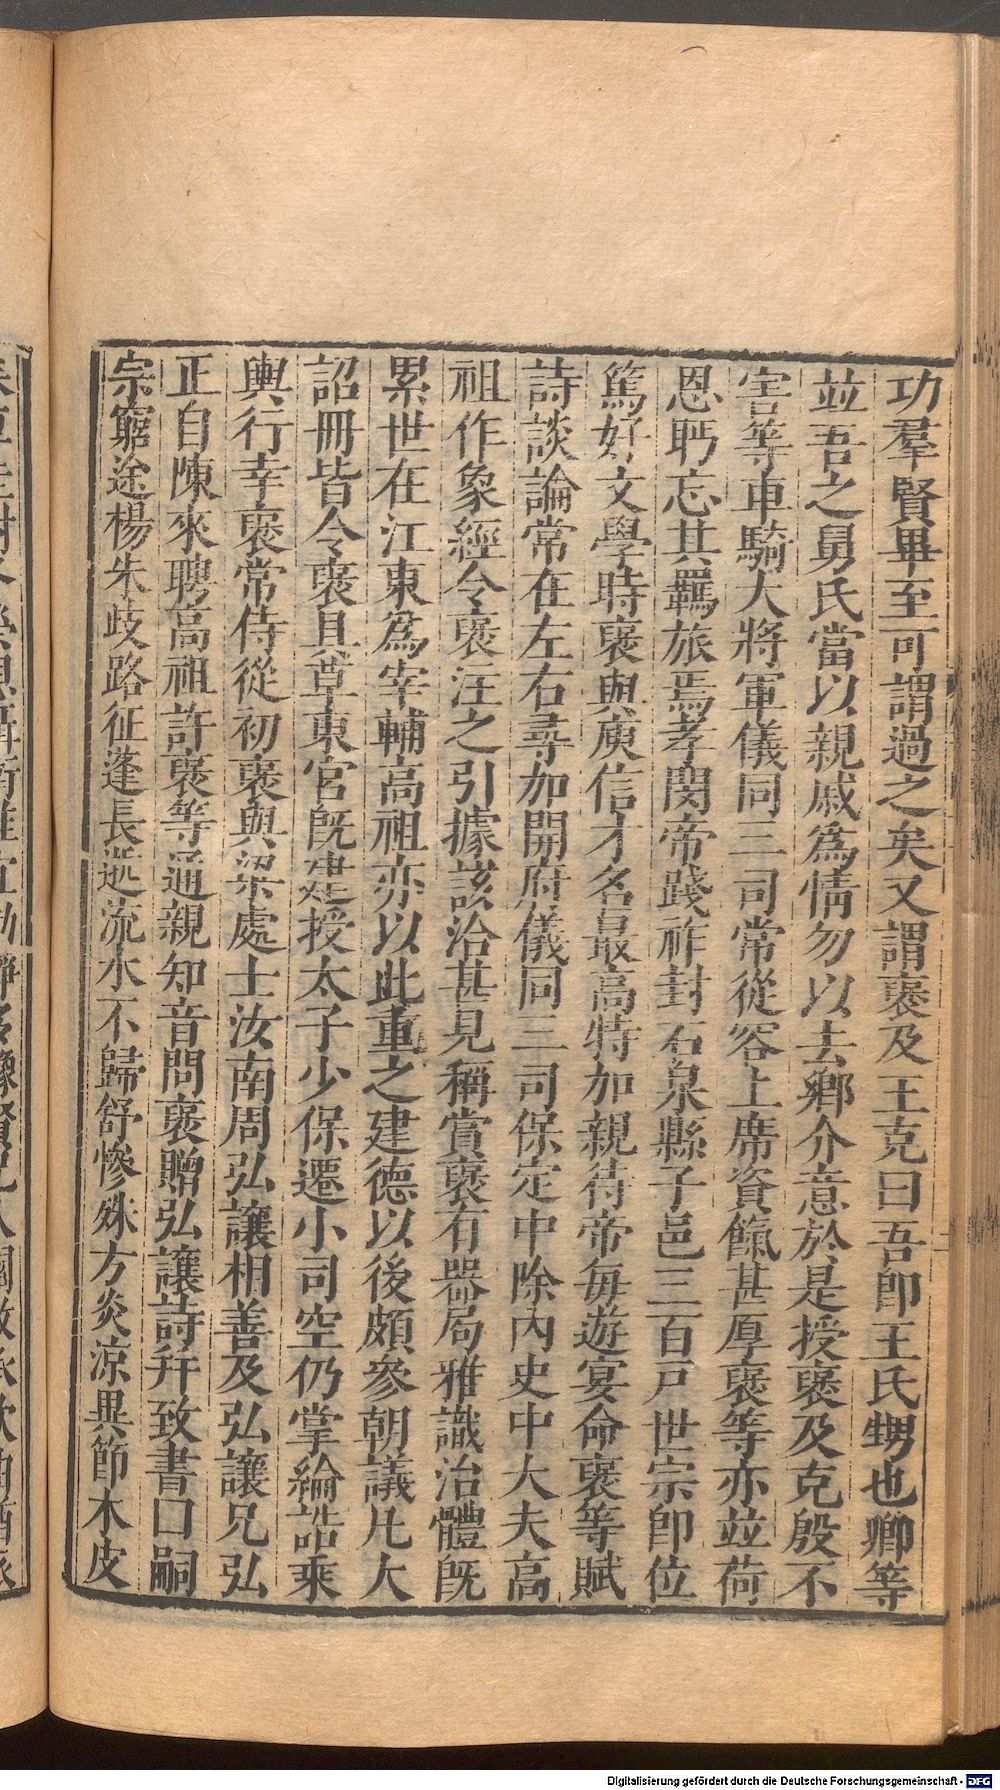 功羣賢畢至可謂過之矣又謂褒及王克曰吾卽王氏甥也卿等
並吾之舅氏當以親戚爲情勿以去鄉介意於是授褒及克殷不
害等車騎大將軍儀同三司常從容上席資餼甚厚褒等亦並荷
恩眄忘其羈旅焉孝閔帝踐祚封石泉縣子邑三百戸世宗卽位
篤好文學時褒與庾信才名最高特加親待帝每遊宴命褒等賦
詩談論常在左右尋加開府儀同三司保定中除內史中大夫高
祖作象經令褒注之引據該洽甚見稱賞褒有器局雅識治體旣
累世在江東爲宰輔高祖亦以此重之建德以後頗參朝議凡大
詔冊皆令褒具草東宮旣建授太子少保遷小司空仍掌綸誥乘
輿行幸褒常侍從初褒與梁處士汝南周弘讓相善及弘讓兄弘
正自陳來聘高祖許褒等通親知音問褒贈弘讓詩幷致書曰嗣
宗窮途楊朱歧路征蓬長逝流水不歸舒慘殊方炎涼異節木皮
Digitalisierung gefördert durch die Deutsche Forschungsgemeinschaft - DFG